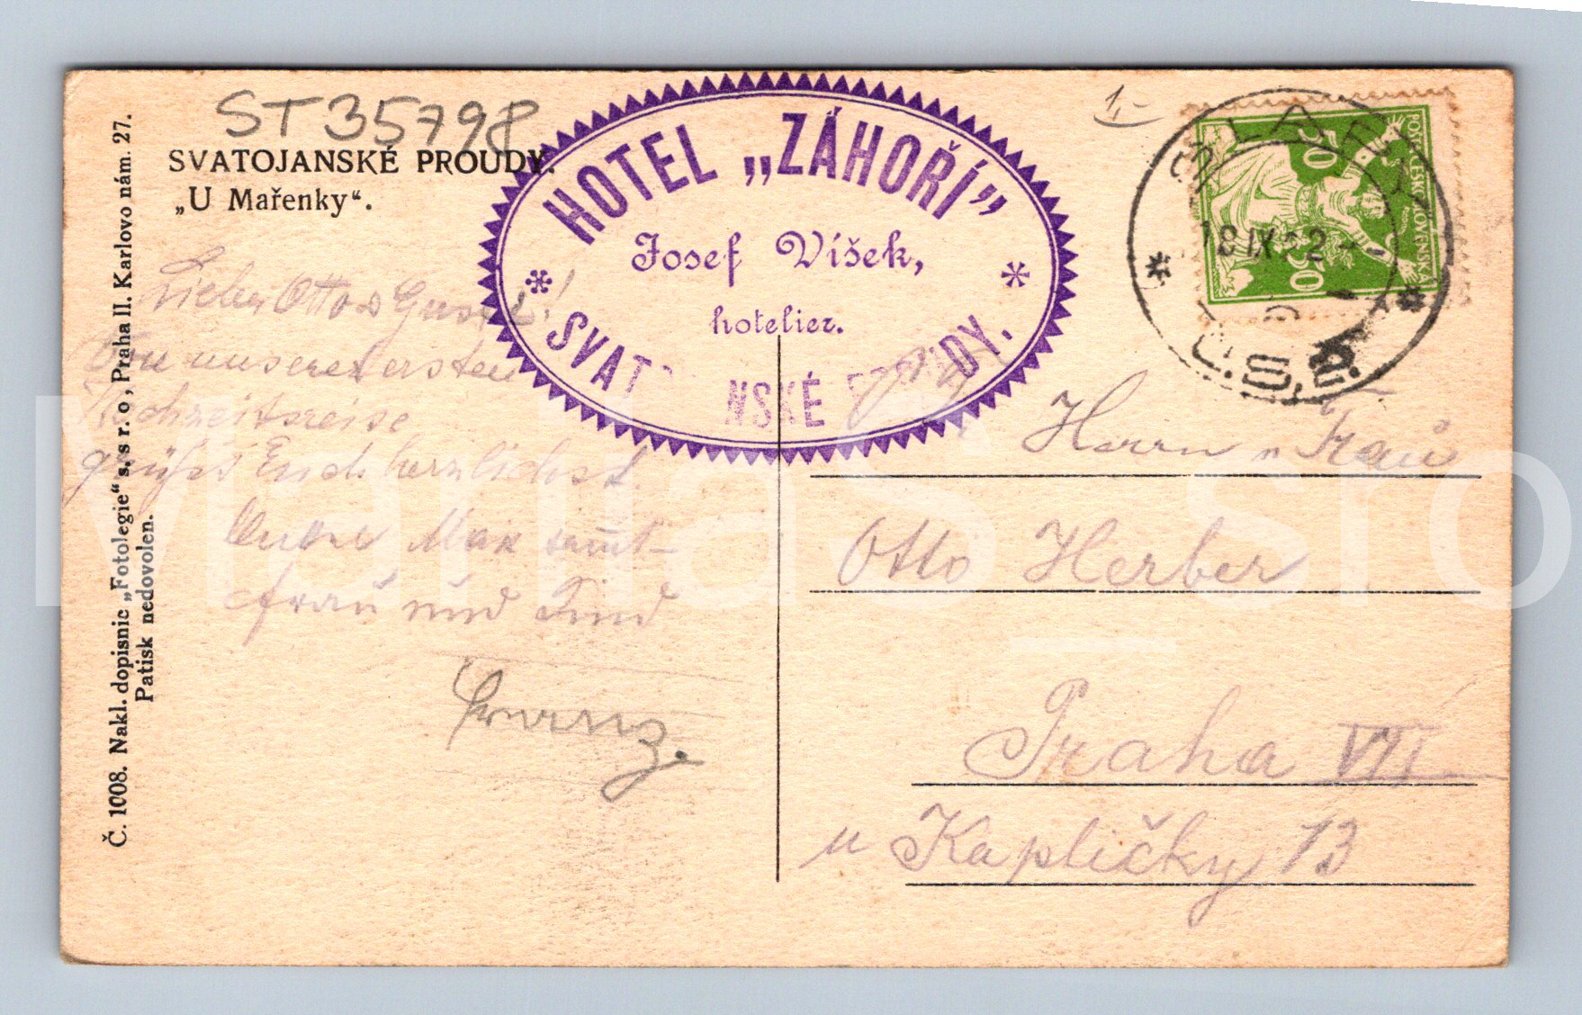 ST 35798
SVATOJANSKÉ PROUDY.
„U Mařenky“.
Č. 1008. Nakl. dopisnic „Fotolegie“ s. s r. o., Praha II. Karlovo nám. 27.
Patisk nedovolen.
HOTEL „ZÁHOŘÍ”
Josef Víšek,
hotelier.
SVAT NSKÉ DY.
1,-
50
50
18 IX 22
Č.S.P.
Lieber Otto & Gustl!
Von unserer ersten
Hochzeitsreise
grüßt Euch herzlichst
Max samt
Frau und Kind
Franz.
Herrn u Frau
Otto Herber
Praha VII
u Kapličky 13
Mana s sro